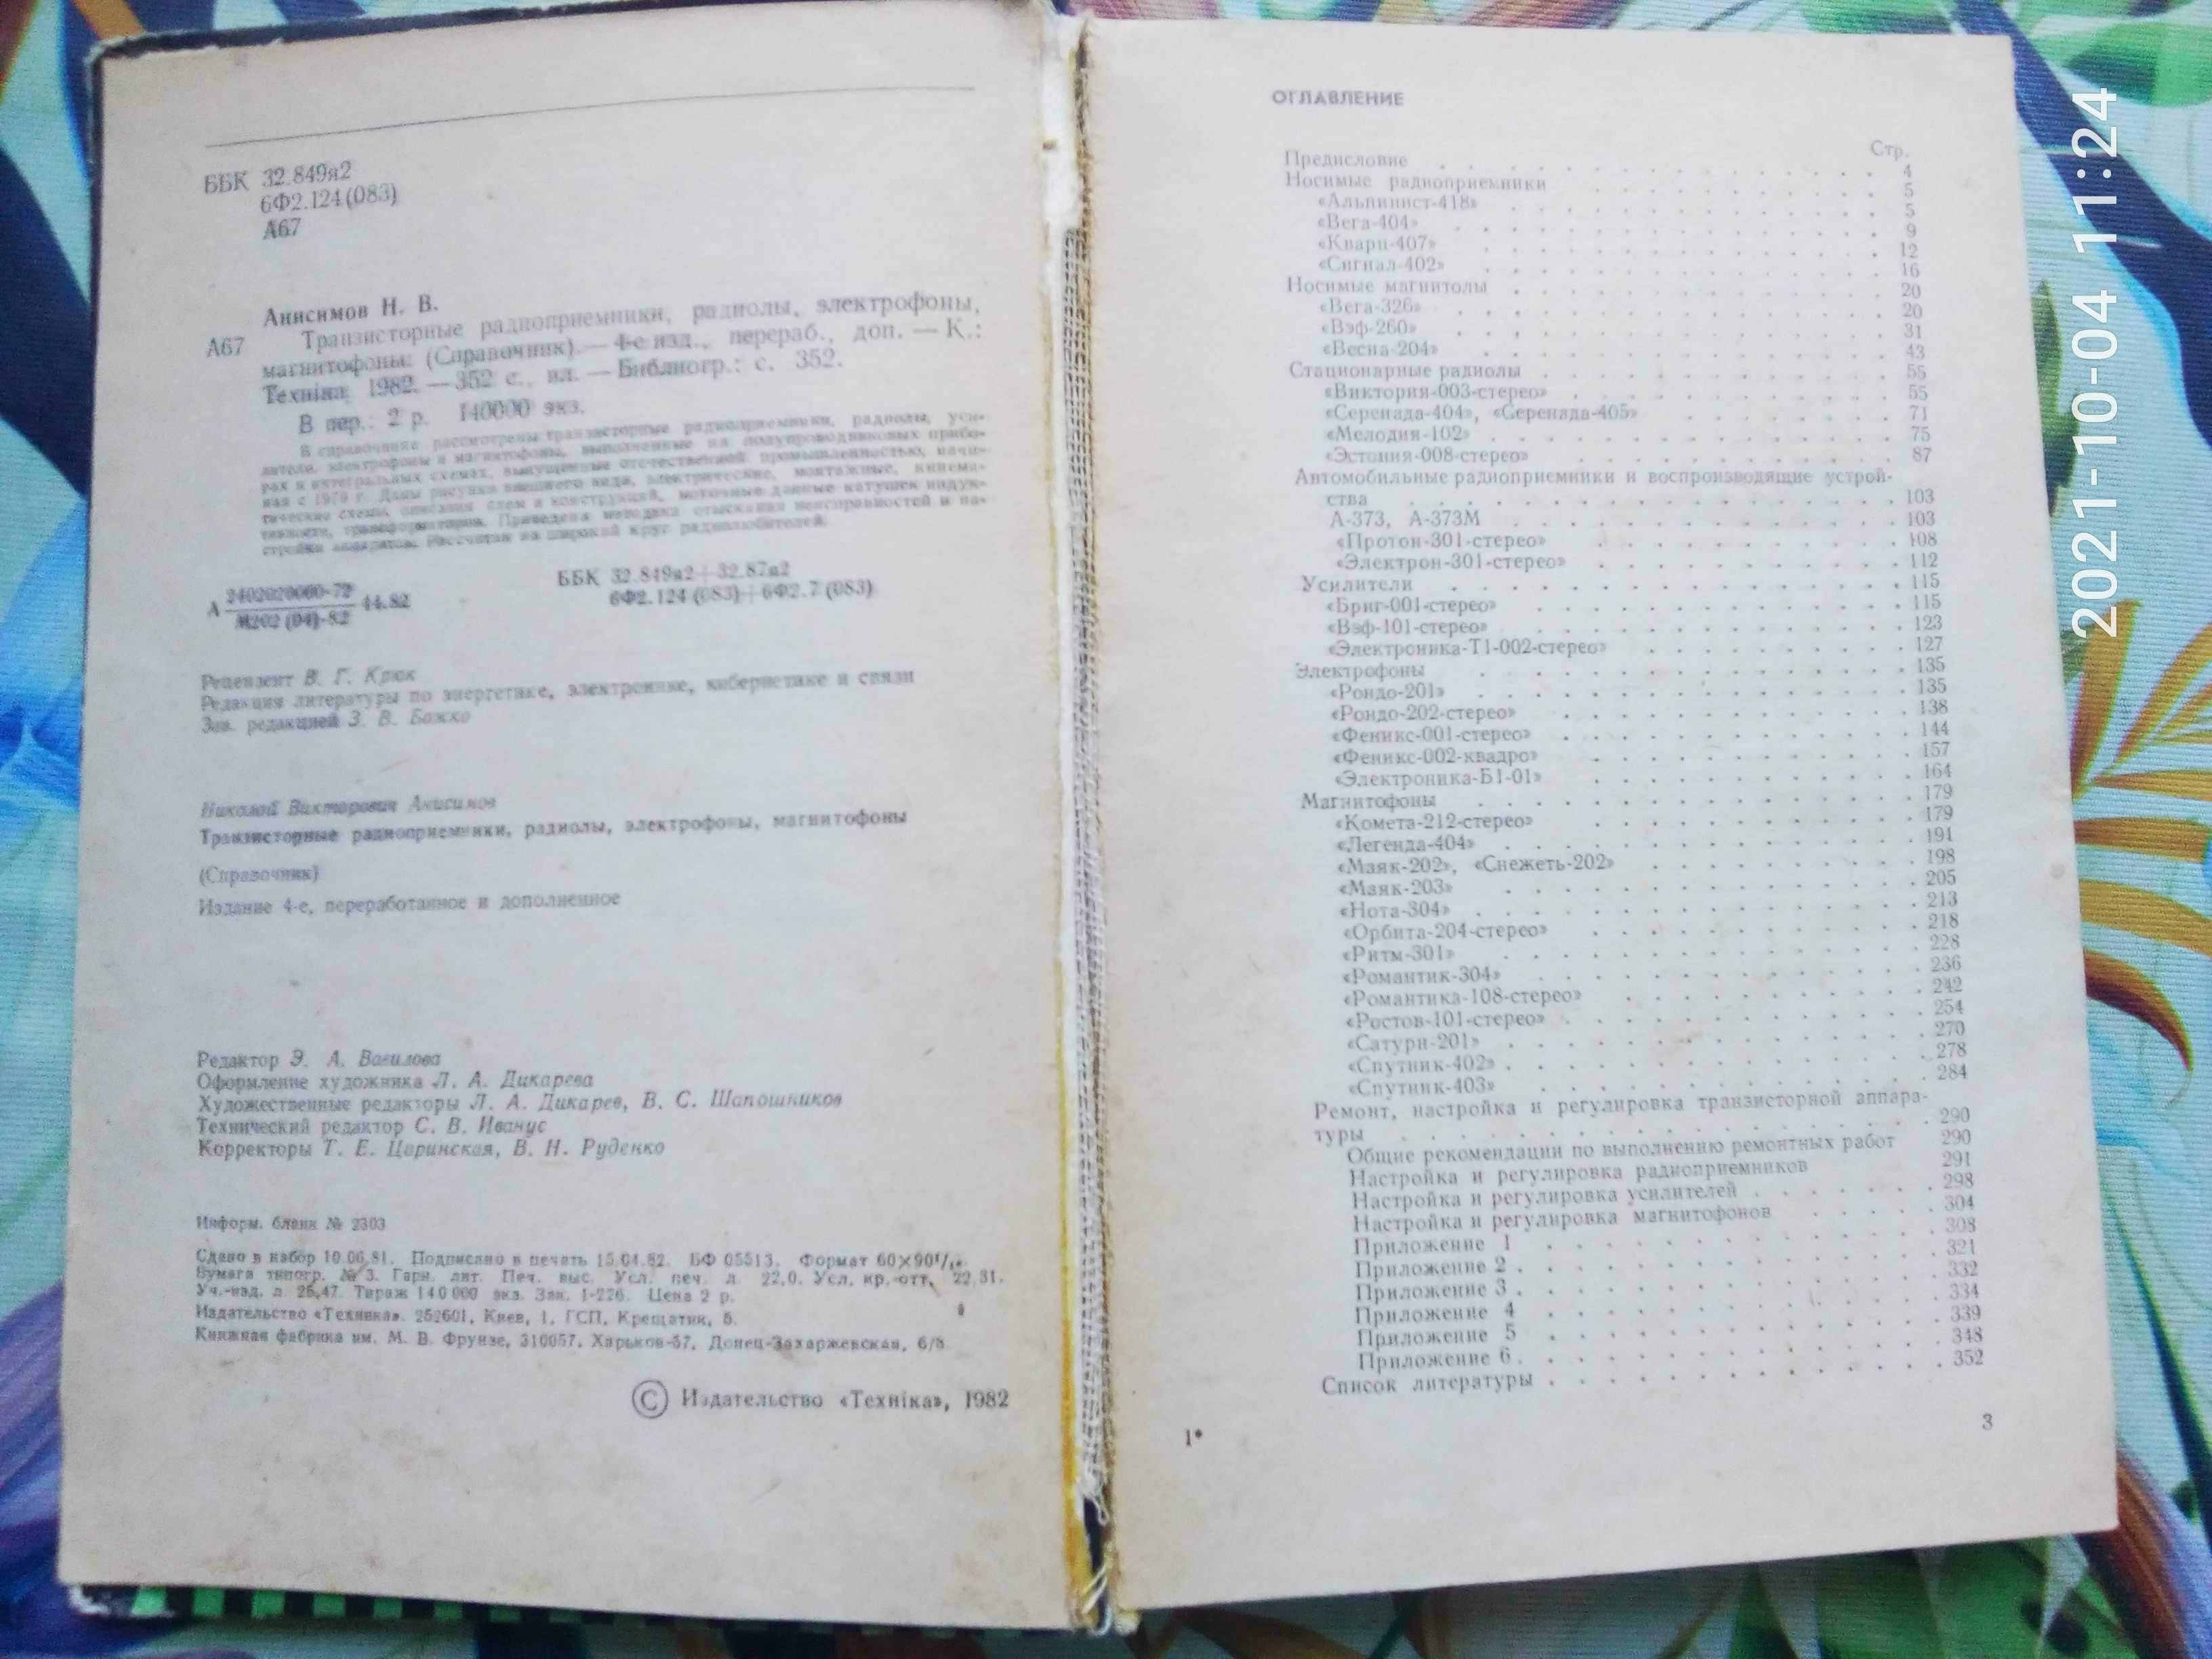 ББК 32.849я2
6Ф2.124(083)
А67
Анисимов Н. В.
А67 Транзисторные радиоприемники, радиолы, электрофоны,
магнитофоны: (Справочник).— 4-е изд., перераб., доп. — К.:
Техніка, 1982. —352 с., ил. — Библиогр.: с. 352.
В пер.: 2 р. 140000 экз.
В справочнике рассмотрены транзисторные радиоприемники, радиолы, уси-
лители, электрофоны и магнитофоны, выполненные на полупроводниковых прибо-
рах и интегральных схемах, выпущенные отечественной промышленностью, начи-
ная с 1970 г. Даны рисунки внешнего вида, электрические, монтажные, кинема-
тические схемы, описания схем и конструкций, моточные данные катушек индук-
тивности, трансформаторов. Приведена методика отыскания неисправностей и на-
стройки аппаратов. Рассчитан на широкий круг радиолюбителей.
А 2402020000-72
М202 (04)-82 44.82
ББК 32.849я2+32.87я2
6Ф2.124 (083)+6Ф2.7 (083)
Рецензент В. Г. Крюк
Редакция литературы по энергетике, электронике, кибернетике и связи
Зав. редакцией З. В. Божко
Николай Викторович Анисимов
Транзисторные радиоприемники, радиолы, электрофоны, магнитофоны
(Справочник)
Издание 4-е, переработанное и дополненное
Редактор Э. А. Вавилова
Оформление художника Л. А. Дикарева
Художественные редакторы Л. А. Дикарев, В. С. Шапошников
Технический редактор С. В. Иванус
Корректоры Т. Е. Царинская, В. Н. Руденко
Информ. бланк № 2303
Сдано в набор 10.06.81. Подписано в печать 15.04.82. БФ 05513. Формат 60×90¹/₁₆.
Бумага типогр. № 3. Гарн. лит. Печ. выс. Усл. печ. л. 22,0. Усл. кр.-отт. 22,31.
Уч.-изд. л. 25,47. Тираж 140 000 экз. Зак. 1-226. Цена 2 р.
Издательство «Техніка». 252601, Киев, 1, ГСП, Крещатик, 5.
Книжная фабрика им. М. В. Фрунзе, 310057, Харьков-57, Донец-Захаржевская, 6/8.
© Издательство «Техніка», 1982
ОГЛАВЛЕНИЕ
Стр.
Предисловие 4
Носимые радиоприемники 5
«Альпинист-418» 5
«Вега-404» 9
«Кварц-407» 12
«Сигнал-402» 16
Носимые магнитолы 20
«Вега-326» 20
«Вэф-260» 31
«Весна-204» 43
Стационарные радиолы 55
«Виктория-003-стерео» 55
«Серенада-404», «Серенада-405» 71
«Мелодия-102» 75
«Эстония-008-стерео» 87
Автомобильные радиоприемники и воспроизводящие устрой-
ства 103
А-373, А-373М 103
«Протон-301-стерео» 108
«Электрон-301-стерео» 112
Усилители 115
«Бриг-001-стерео» 115
«Вэф-101-стерео» 123
«Электроника-Т1-002-стерео» 127
Электрофоны 135
«Рондо-201» 135
«Рондо-202-стерео» 138
«Феникс-001-стерео» 144
«Феникс-002-квадро» 157
«Электроника-Б1-01» 164
Магнитофоны 179
«Комета-212-стерео» 179
«Легенда-404» 191
«Маяк-202», «Снежеть-202» 198
«Маяк-203» 205
«Нота-304» 213
«Орбита-204-стерео» 218
«Ритм-301» 228
«Романтик-304» 236
«Романтика-108-стерео» 242
«Ростов-101-стерео» 254
«Сатурн-201» 270
«Спутник-402» 278
«Спутник-403» 284
Ремонт, настройка и регулировка транзисторной аппара-
туры 290
Общие рекомендации по выполнению ремонтных работ 290
Настройка и регулировка радиоприемников 291
Настройка и регулировка усилителей 298
Настройка и регулировка магнитофонов 304
Приложение 1 308
Приложение 2 321
Приложение 3 332
Приложение 4 334
Приложение 5 339
Приложение 6 348
Список литературы 352
1*
3
2021-10-04 11:24